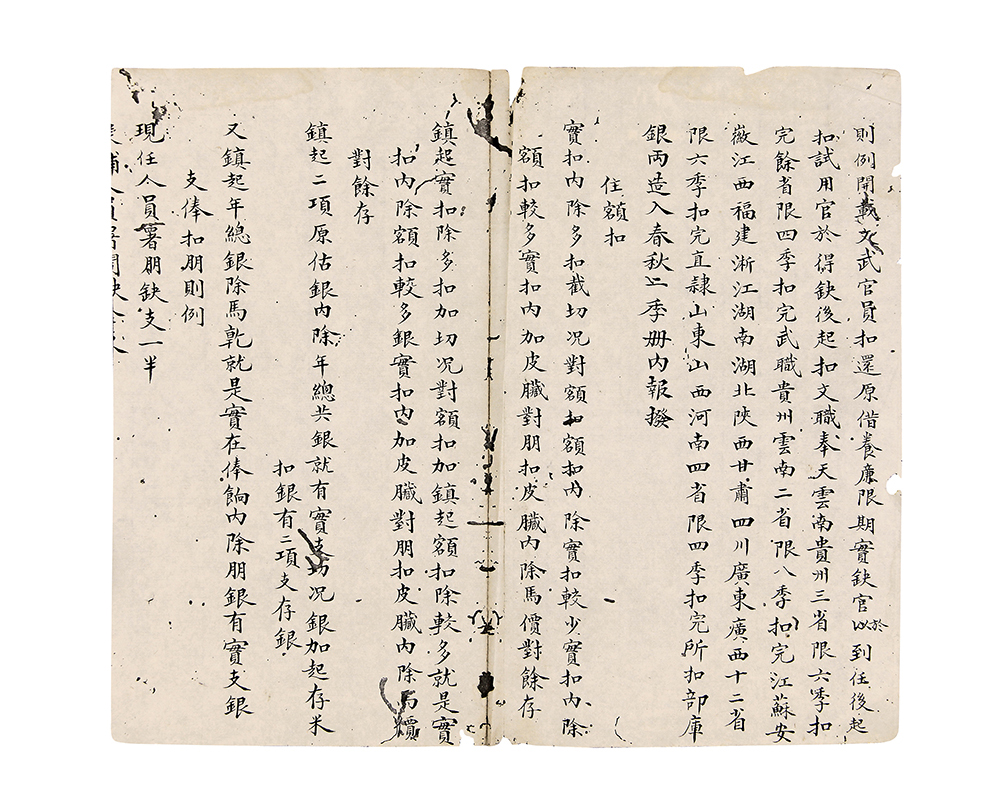 則例開載文武官員扣還原借養廉限期實缺官以於到任後起
扣試用官於得缺後起扣文職奉天雲南貴州三省限六季扣
完餘省限四季扣完武職貴州雲南二省限八季扣完江蘇安
徽江西福建浙江湖南湖北陝西甘肅四川廣東廣西十二省
限六季扣完直隸山東山西河南四省限四季扣完所扣部庫
銀兩造入春秋二季册內報撥
住額扣
實扣內除多扣截切况對額扣額扣內除實扣較少實扣內除
額扣較多實扣內加皮臟對朋扣皮臟內除馬價對餘存
鎮起實扣除多扣加切况對額扣加鎮起額扣除較多就是實
扣內除額扣較多銀實扣內加皮臟對朋扣皮臟內除馬價
對餘存
鎮起二項原估銀內除年總共銀就有實支切况銀加起存米
扣銀有二項支存銀
又鎮起年總銀除馬乹就是實在俸餉內除朋銀有實支銀
支俸扣朋則例
現任人員署朋缺支一半